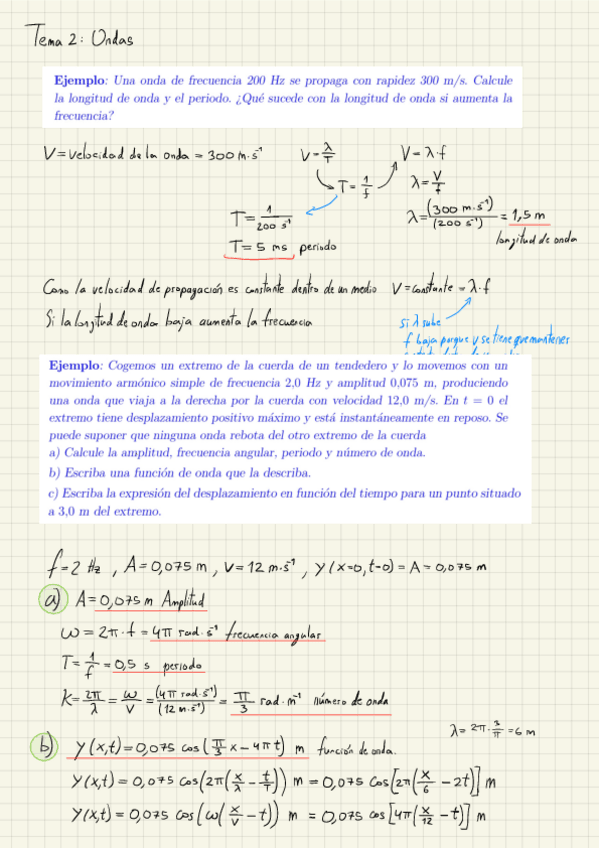 Tema 2: Ondas
Ejemplo: Una onda de frecuencia 200 Hz se propaga con rapidez 300 m/s. Calcule
la longitud de onda y el periodo. ¿Qué sucede con la longitud de onda si aumenta la
frecuencia?
V = velocidad de la onda = 300 m·s⁻¹ V = λ/T V = λ·f
T = 1/f λ = V/f
T = 1/(200 s⁻¹) λ = (300 m·s⁻¹)/(200 s⁻¹) = 1,5 m
T = 5 ms periodo longitud de onda
Como la velocidad de propagación es constante dentro de un medio V = constante = λ·f
Si la longitud de onda baja aumenta la frecuencia si λ sube
f baja porque v se tiene que mantener
Ejemplo: Cogemos un extremo de la cuerda de un tendedero y lo movemos con un
movimiento armónico simple de frecuencia 2,0 Hz y amplitud 0,075 m, produciendo
una onda que viaja a la derecha por la cuerda con velocidad 12,0 m/s. En t = 0 el
extremo tiene desplazamiento positivo máximo y está instantáneamente en reposo. Se
puede suponer que ninguna onda rebota del otro extremo de la cuerda
a) Calcule la amplitud, frecuencia angular, periodo y número de onda.
b) Escriba una función de onda que la describa.
c) Escriba la expresión del desplazamiento en función del tiempo para un punto situado
a 3,0 m del extremo.
f = 2 Hz , A = 0,075 m , V = 12 m·s⁻¹ , y(x=0, t=0) = A = 0,075 m
a) A = 0,075 m Amplitud
ω = 2π·f = 4π rad·s⁻¹ frecuencia angular
T = 1/f = 0,5 s periodo
K = 2π/λ = ω/V = (4π rad·s⁻¹)/(12 m·s⁻¹) = π/3 rad·m⁻¹ número de onda
λ = 2π·3/π = 6 m
b) y(x,t) = 0,075 cos(π/3 x - 4πt) m función de onda.
y(x,t) = 0,075 cos(2π(x/λ - t/T)) m = 0,075 cos[2π(x/6 - 2t)] m
y(x,t) = 0,075 cos(ω(x/V - t)) m = 0,075 cos[4π(x/12 - t)] m